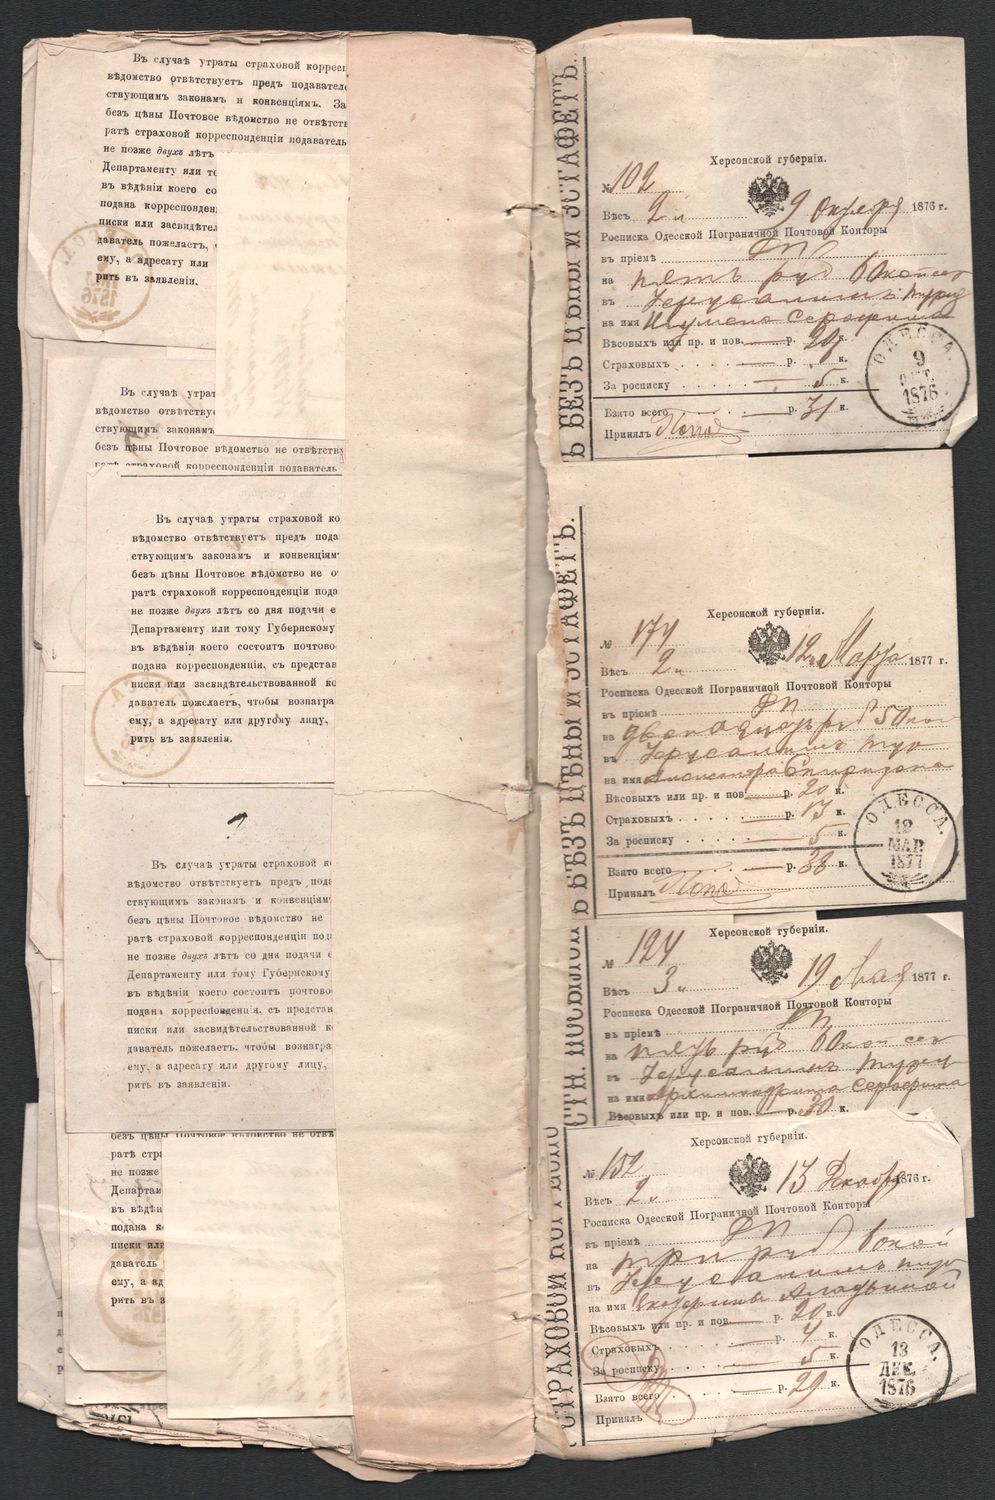 Въ случаѣ утраты страховой коррес
вѣдомство отвѣтствуетъ предъ подавател
ствующимъ законамъ и конвенціямъ. За
безъ цѣны Почтовое вѣдомство не отвѣтств
ратѣ страховой корреспонденціи подаватель
не позже двухъ лѣтъ
Департаменту или то
въ вѣдѣніи коего со
подана корреспонден
писки или засвидѣтел
даватель пожелаетъ,
ему, а адресату или
рить въ заявленіи.
1876
Въ случаѣ утрат
вѣдомство отвѣтствуе
ствующимъ законамъ
безъ цѣны Почтовое вѣдомство не отвѣтству
ратѣ страховой корреспонденціи подаватель
Въ случаѣ утраты страховой ко
вѣдомство отвѣтствуетъ предъ пода
ствующимъ законамъ и конвенціям
безъ цѣны Почтовое вѣдомство не о
ратѣ страховой корреспонденціи пода
не позже двухъ лѣтъ со дня подачи е
Департаменту или тому Губернскому
въ вѣдѣніи коего состоитъ почтово
подана корреспонденція, съ представ
писки или засвидѣтельствованной ко
даватель пожелаетъ, чтобы вознагра
ему, а адресату или другому лицу,
рить въ заявленіи.
Въ случаѣ утраты страховой к
вѣдомство отвѣтствуетъ предъ пода
ствующимъ законамъ и конвенціям
безъ цѣны Почтовое вѣдомство не
ратѣ страховой корреспонденціи под
не позже двухъ лѣтъ со дня подачи е
Департаменту или тому Губернскому
въ вѣдѣніи коего состоитъ почтово
подана корреспонденція, съ представ
писки или засвидѣтельствованной к
даватель пожелаетъ, чтобы вознагра
ему, а адресату или другому лицу,
рить въ заявленіи.
безъ цѣны Почтовое вѣдомство не отвѣ
ратѣ стра
не позже
Департам
въ вѣдѣн
подана к
писки или
даватель
ему, а ад
рить въ з
Ъ БЕЗЪ ЦѢНЫ И ЭСТАФЕТЪ.
Херсонской губерніи.
№ 102
Вѣсъ 2 л 9 Октября 1876 г.
Росписка Одесской Пограничной Почтовой Конторы
въ пріемѣ ДП
на пять руб 60 коп сер
въ Іерусалимъ Турц
на имя Игумена Серафима
Вѣсовыхъ или пр. и пов. — р. 20 к.
Страховыхъ — р. к.
За росписку — 5 к.
Взято всего — р. 31 к.
Принялъ Попов
ОДЕССА.
9
ОКТ.
1876
Ъ БЕЗЪ ЦѢНЫ И ЭСТАФЕТЪ.
Херсонской губерніи.
№ 174
Вѣсъ 2 л 12 Марта 1877 г.
Росписка Одесской Пограничной Почтовой Конторы
въ пріемѣ ДП
на двенадцать руб 50 коп
въ Іерусалимъ Тур
на имя Александра Спиридона
Вѣсовыхъ или пр. и пов — р. 20 к.
Страховыхъ — р. 13 к.
За росписку 5 к.
Взято всего — р. 38 к.
Принялъ Попов
ОДЕССА.
12
МАР.
1877
Херсонской губерніи.
№ 124
Вѣсъ 3 л 19 Мая 1877 г.
Росписка Одесской Пограничной Почтовой Конторы
въ пріемѣ ДП
на пять руб 60 коп сер
въ Іерусалимъ Турц
на имя Архимандрита Серафима
Вѣсовыхъ или пр. и пов. — р. 30 к.
СТРАХОВОЙ КОРРЕСПО
Херсонской губерніи.
№ 152
Вѣсъ 2 л 13 Декабря 1876 г.
Росписка Одесской Пограничной Почтовой Конторы
въ пріемѣ ДП
на три руб коп
въ Іерусалимъ Тур
на имя Екатерины
Вѣсовыхъ или пр. и пов — р. 20 к.
Страховыхъ — р. 4 к.
За росписку — 5 к.
Взято всего — р. 29 к.
Принялъ
ОДЕССА.
13
ДЕК.
1876